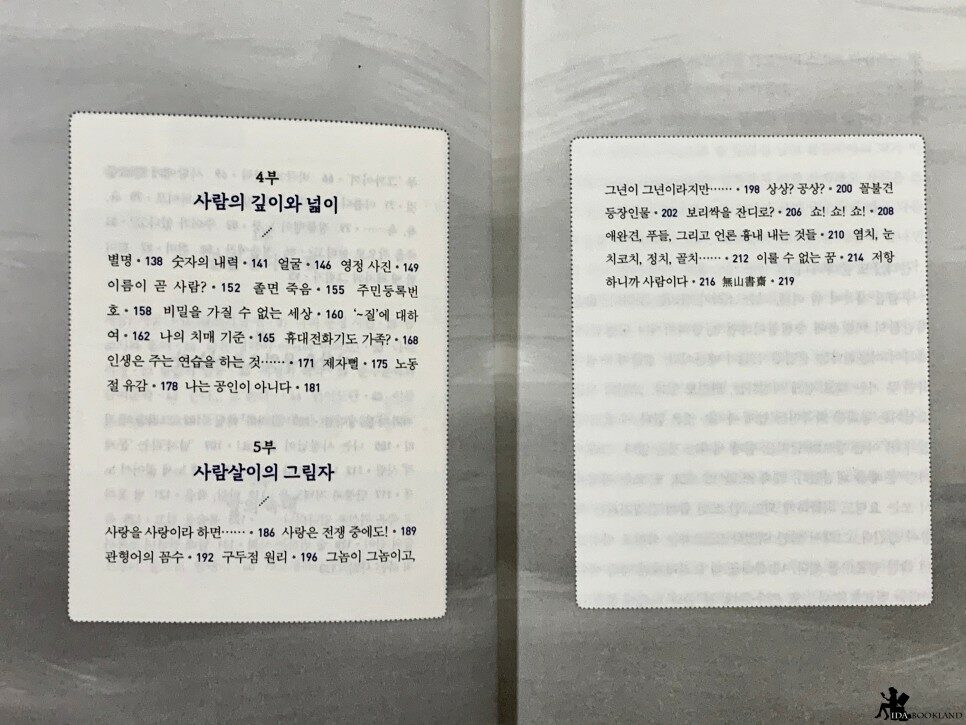 4부
사람의 깊이와 넓이
별명 • 138 숫자의 내력 • 141 얼굴 • 146 영정 사진 • 149
이름이 곧 사람? • 152 졸면 죽음 • 155 주민등록번
호 • 158 비밀을 가질 수 없는 세상 • 160 '~질'에 대하
여 • 162 나의 치매 기준 • 165 휴대전화기도 가족? • 168
인생은 주는 연습을 하는 것…… • 171 제자뻘 • 175 노동
절 유감 • 178 나는 공인이 아니다 • 181
5부
사람살이의 그림자
사랑을 사랑이라 하면…… • 186 사랑은 전쟁 중에도! • 189
관형어의 꼼수 • 192 구두점 원리 • 196 그놈이 그놈이고
그년이 그년이라지만…… • 198 상상? 공상? • 200 꼴불견
등장인물 • 202 보리싹을 잔디로? • 206 쇼! 쇼! 쇼! • 208
애완견, 푸들, 그리고 언론 흉내 내는 것들 • 210 염치, 눈
치코치, 정치, 골치…… • 212 이룰 수 없는 꿈 • 214 저항
하니까 사람이다 • 216 無山書齋 • 219
IDA BOOKLAND